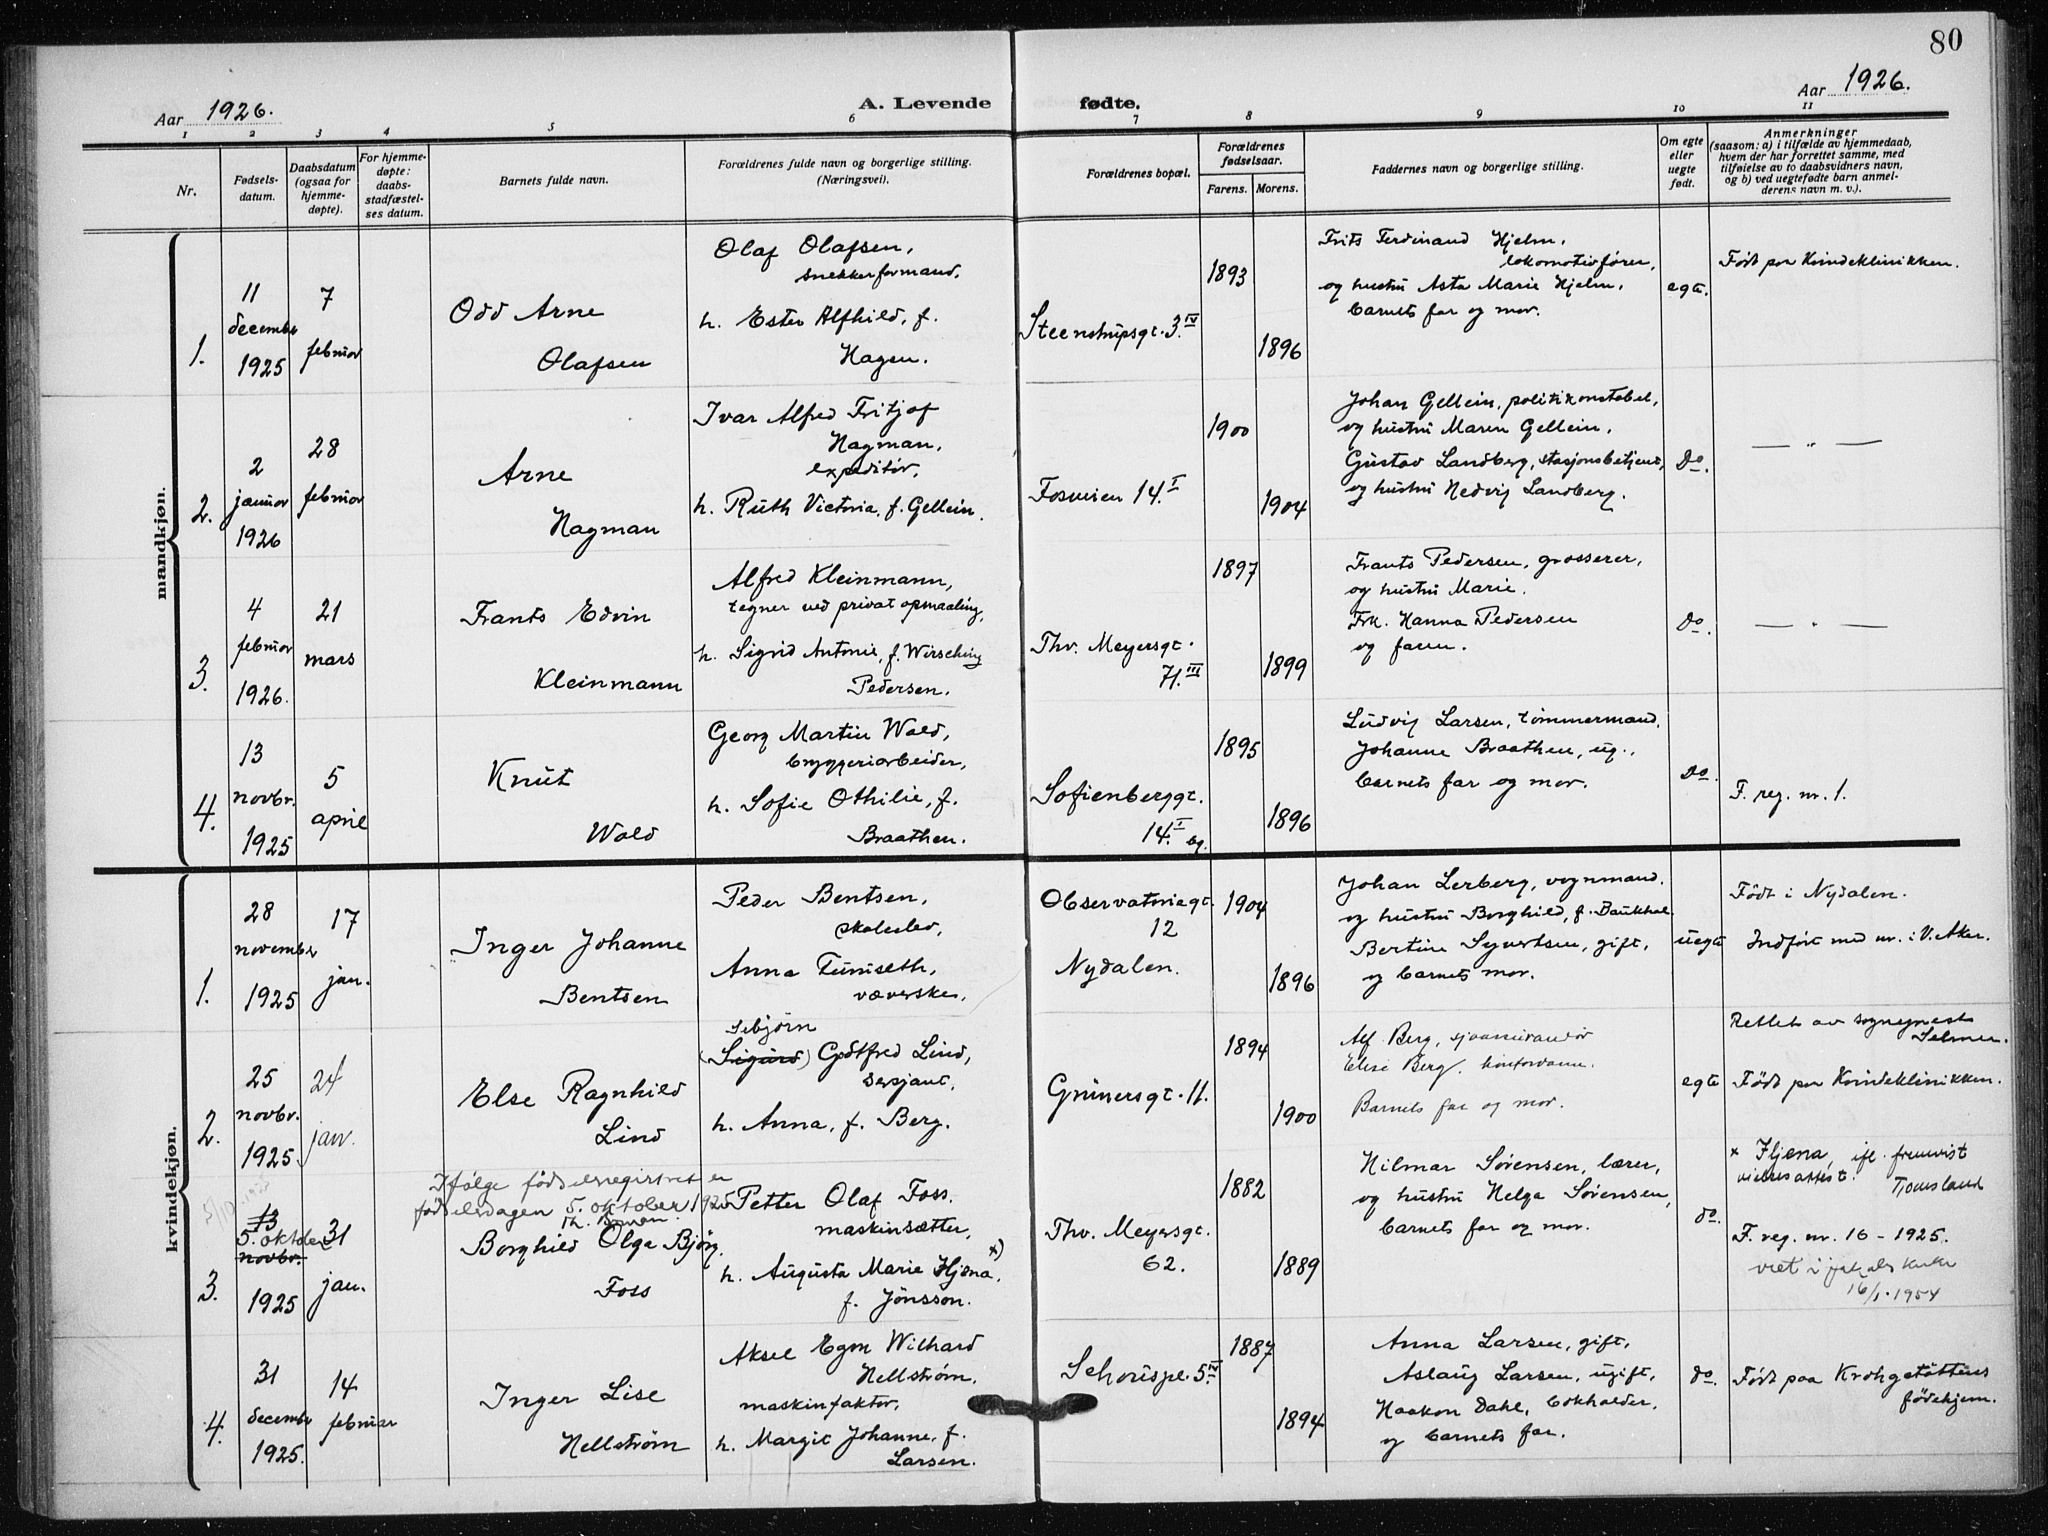 80
Aar 1926.
A. Levende fødte.
Aar 1926.
1 2 3 4 5 6 7 8 9 10 11
Nr.
Fødsels-
datum.
Daabsdatum
(ogsaa for
hjemme-
døpte).
For hjemme-
døpte:
daabs-
stadfæstel-
ses datum.
Barnets fulde navn.
Forældrenes fulde navn og borgerlige stilling.
(Næringsvei).
Forældrenes bopæl.
Forældrenes
fødselsaar.
Farens. Morens.
Faddernes navn og borgerlige stilling.
Om egte
eller
uegte
født.
Anmerkninger
(saasom: a) i tilfælde av hjemmedaab,
hvem der har forrettet samme, med
tilføielse av to daabsvidners navn,
og b) ved uegtefødte barn anmel-
derens navn m. v.).
mandkjøn.
1.
11
decembr
1925
7
februar
Odd Arne
Olafsen
Olaf Olafsen,
snekkerformand,
h. Ester Alfhild, f.
Hagen.
Steenstrupsgt. 3.IV
1893
1896
Frits Ferdinand Hjelm,
lokomotivfører,
og hustru Asta Marie Hjelm,
barnets far og mor.
egte.
Født paa Kvindeklinikken.
2.
2
januar
1926
28
februar
Arne
Hagman
Ivar Alfred Fritjof
Hagman,
expeditør,
h. Ruth Victoria, f. Gellein.
Fosveien 14.I
1900
1904
Johan Gellein, politikonstabel,
og hustru Maren Gellein,
Gustav Landberg, stasjonsbetjent,
og hustru Hedvig Landberg.
Do.
— " —
3.
4
februar
1926.
21
mars
Frants Edvin
Kleinmann
Alfred Kleinmann,
tegner ved privat opmaaling,
h. Sigrid Antonie, f. Wirsching
Pedersen.
Thv. Meyersgt.
71.III
1897
1899
Frants Pedersen, grosserer,
og hustru Marie.
Frk. Hanna Pedersen
og faren.
Do.
— " —
4.
13
novbr.
1925
5
april
Knut
Wold
Georg Martin Wold,
bryggeriarbeider,
h. Sofie Othilie, f.
Braathen.
Sofienberggt.
14.I bg.
1895
1896
Ludvig Larsen, tømmermand.
Johanne Braathen, ug.,
barnets far og mor.
Do.
F. reg. nr. 1.
kvindekjøn.
1.
28
novembr
1925
17
jan.
Inger Johanne
Bentsen
Peder Bentsen,
skoleelev,
Anna Tuniseth,
væverske,
Observatoriegt.
12
Nydalen.
1904
1896
Johan Lerberg, vognmand.
og hustru Borghild, f. Baukhol.
Bertine Syvertsen, gift,
og barnets mor.
uegte
Født i Nydalen.
Indført med nr. i V. Aker.
2.
25
novbr.
1925
24
jan.
Else Ragnhild
Lind
Sebjørn
(Sigurd) Godtfred Lind,
sersjant,
h. Anna, f. Berg.
Grünersgt. 11.
1894
1900
Alf Berg,
Elise Berg,
Barnets far og mor.
egte
Rettet av sogneprest
Selmer.
Født paa Kvindeklinikken.
3.
13
5. oktober
novbr.
1925
31
jan.
Ifølge fødselsregistret er
fødselsdagen 5. oktober 1925
Borghild Olga Bjørg
Foss
Petter Olaf Foss.
maskinsætter,
h. Augusta Marie Hjøna, x)
f. Jönsson.
Thv. Meyersgt.
62.
1882
1889
Hilmar Sørensen, lærer,
og hustru Helga Sørensen,
barnets far og mor.
do.
x Hjæna, ifl. fremvist
vielsesattest. Tjomsland
F. reg. nr. 16 - 1925.
16/1. 1954
4.
31
decembr
1925.
14
februar
Inger Lise
Hellstrøm
Aksel Egon Wilhard
Hellstrøm,
maskinfaktor,
h. Margit Johanne, f.
Larsen.
Schouspl. 5.IV
1887
1894
Anna Larsen, gift,
Aslaug Larsen, ugift,
Haakon Dahl, bokholder,
og barnets far.
do.
Født paa Krohgstøttens
fødehjem.